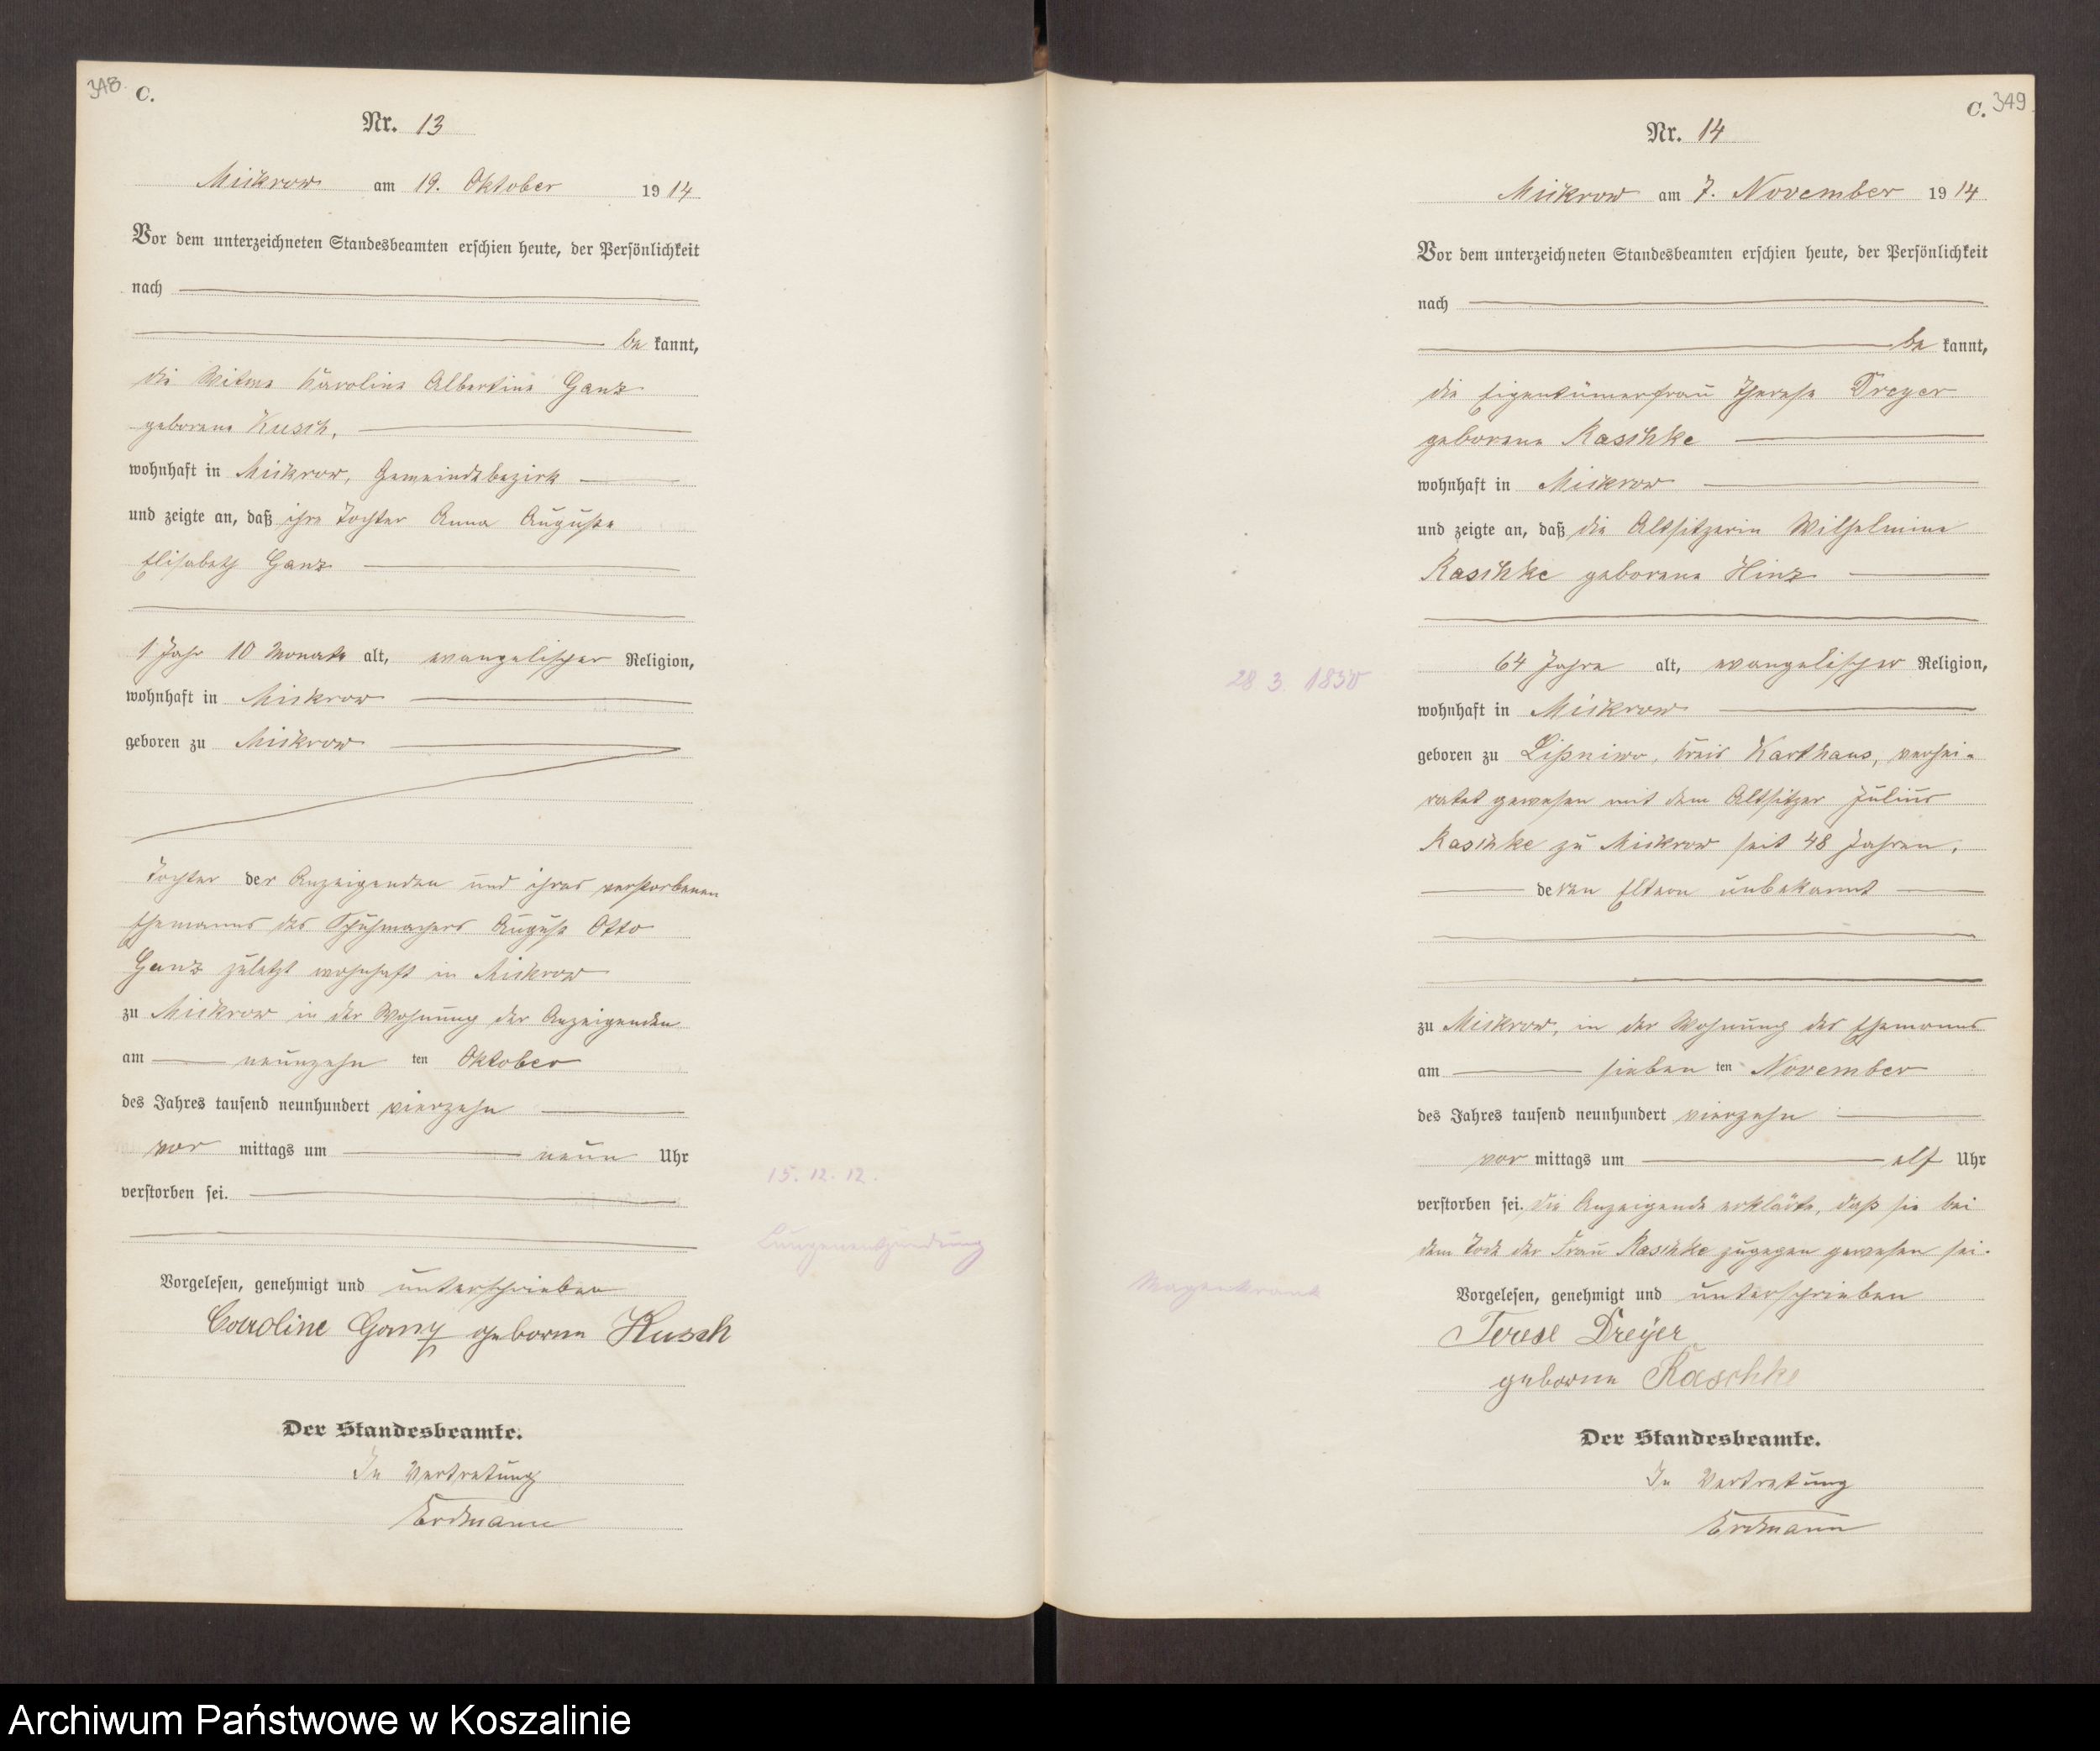 348.
C.
Nr. 13
Mickrow am 19. Oktober 1914
Vor dem unterzeichneten Standesbeamten erschien heute, der Persönlichkeit
nach
be kannt,
die Witwe Karoline Albertine Ganz
geborene Kusch,
wohnhaft in Mickrow, Gemeindebezirk
und zeigte an, daß ihre Tochter Anna Auguste
Elisabeth Ganz
1 Jahr 10 Monate alt, evangelischer Religion,
wohnhaft in Mickrow
geboren zu Mickrow
Tochter der Anzeigenden und ihres verstorbenen
Ehemanns des Schuhmachers August Otto
Ganz zuletzt wohnhaft in Mickrow
zu Mickrow in der Wohnung der Anzeigenden
am neunzehn ten Oktober
des Jahres tausend neunhundert vierzehn
vor mittags um neun Uhr
verstorben sei.
15. 12. 12.
Lungenentzündung
Vorgelesen, genehmigt und unterschrieben
Caroline Ganz geborne Kusch
Der Standesbeamte.
In Vertretung
Erdmann
C. 349
Nr. 14
Mickrow am 7. November 1914
Vor dem unterzeichneten Standesbeamten erschien heute, der Persönlichkeit
nach
be kannt,
die Eigentümerfrau Therese Dreyer
geborene Raschke
wohnhaft in Mickrow
und zeigte an, daß die Altsitzerin Wilhelmine
Raschke geborene Hinz
64 Jahre alt, evangelischer Religion,
28 3. 1850
wohnhaft in Mickrow
geboren zu Lißniwo, Kreis Karthaus, verhei-
ratet gewesen mit dem Altsitzer Julius
Raschke zu Mickrow seit 48 Jahren,
deren Eltern unbekannt
zu Mickrow, in der Wohnung des Ehemanns
am sieben ten November
des Jahres tausend neunhundert vierzehn
vor mittags um elf Uhr
verstorben sei. Die Anzeigende erklärte, daß sie bei
dem Tode der Frau Raschke zugegen gewesen sei.
Magenkrank
Vorgelesen, genehmigt und unterschrieben
Terese Dreyer
geborne Raschke
Der Standesbeamte.
In Vertretung
Erdmann
Archiwum Państwowe w Koszalinie